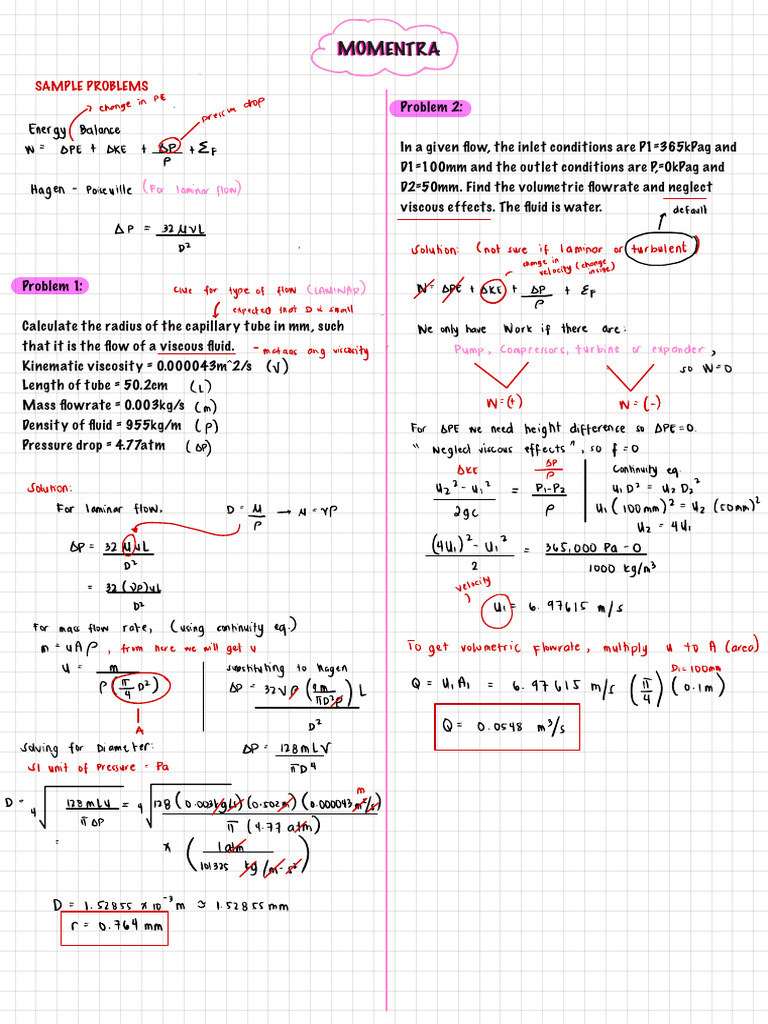 MOMENTRA
SAMPLE PROBLEMS
change in PE
pressure drop
Energy Balance
W = ΔPE + ΔKE + ΔP/ρ + ΣF
Hagen - Poiseville (For laminar flow)
ΔP = 32 μνL / D²
Problem 1:
clue for type of flow (LAMINAR)
expected that D is small
Calculate the radius of the capillary tube in mm, such
that it is the flow of a viscous fluid. - mataas ang viscosity
Kinematic viscosity = 0.000043m^2/s (ν)
Length of tube = 50.2cm (L)
Mass flowrate = 0.003kg/s (m)
Density of fluid = 955kg/m (ρ)
Pressure drop = 4.77atm (ΔP)
Solution:
For laminar flow, ν = μ/ρ → μ = νρ
ΔP = 32 μuL / D²
= 32 (νρ)uL / D²
For mass flow rate, (using continuity eq.)
m = uAρ, from here we will get u
u = m / ρ(π/4 D²)
A
substituting to Hagen
ΔP = 32νρ (4m / πD²ρ) L / D²
Solving for Diameter:
ΔP = 128mLν / πD⁴
SI unit of Pressure = Pa
D = ⁴√(128mLν / πΔP) = ⁴√(128 (0.003kg/s)(0.502m)(0.000043 m²/s) / π (4.77 atm)) m
= × (1 atm / 101325 kg/m·s²)
D = 1.52855 × 10⁻³ m ≈ 1.52855 mm
r = 0.764 mm
Problem 2:
In a given flow, the inlet conditions are P1=365kPag and
D1=100mm and the outlet conditions are P,=0kPag and
D2=50mm. Find the volumetric flowrate and neglect
viscous effects. The fluid is water.
default
Solution: (not sure if laminar or turbulent)
change in velocity (change inside)
W = ΔPE + ΔKE + ΔP/ρ + ΣF
We only have Work if there are:
Pump, Compressors, turbine or expander,
so W=0
W = (+) W = (-)
For ΔPE we need height difference so ΔPE = 0.
"Neglect viscous effects", so f = 0
ΔKE ΔP/ρ
u₂² - u₁² / 2gc = P₁-P₂ / ρ
Continuity eq.
u₁D² = u₂D₂²
u₁(100mm)² = u₂(50mm)²
u₂ = 4u₁
(4u₁)² - u₁² / 2 = 365,000 Pa - 0 / 1000 kg/m³
velocity
u₁ = 6.97615 m/s
To get volumetric flowrate, multiply u to A (area)
D₁=100mm
Q = u₁A₁ = 6.97615 m/s (π/4)(0.1m)
Q = 0.0548 m³/s